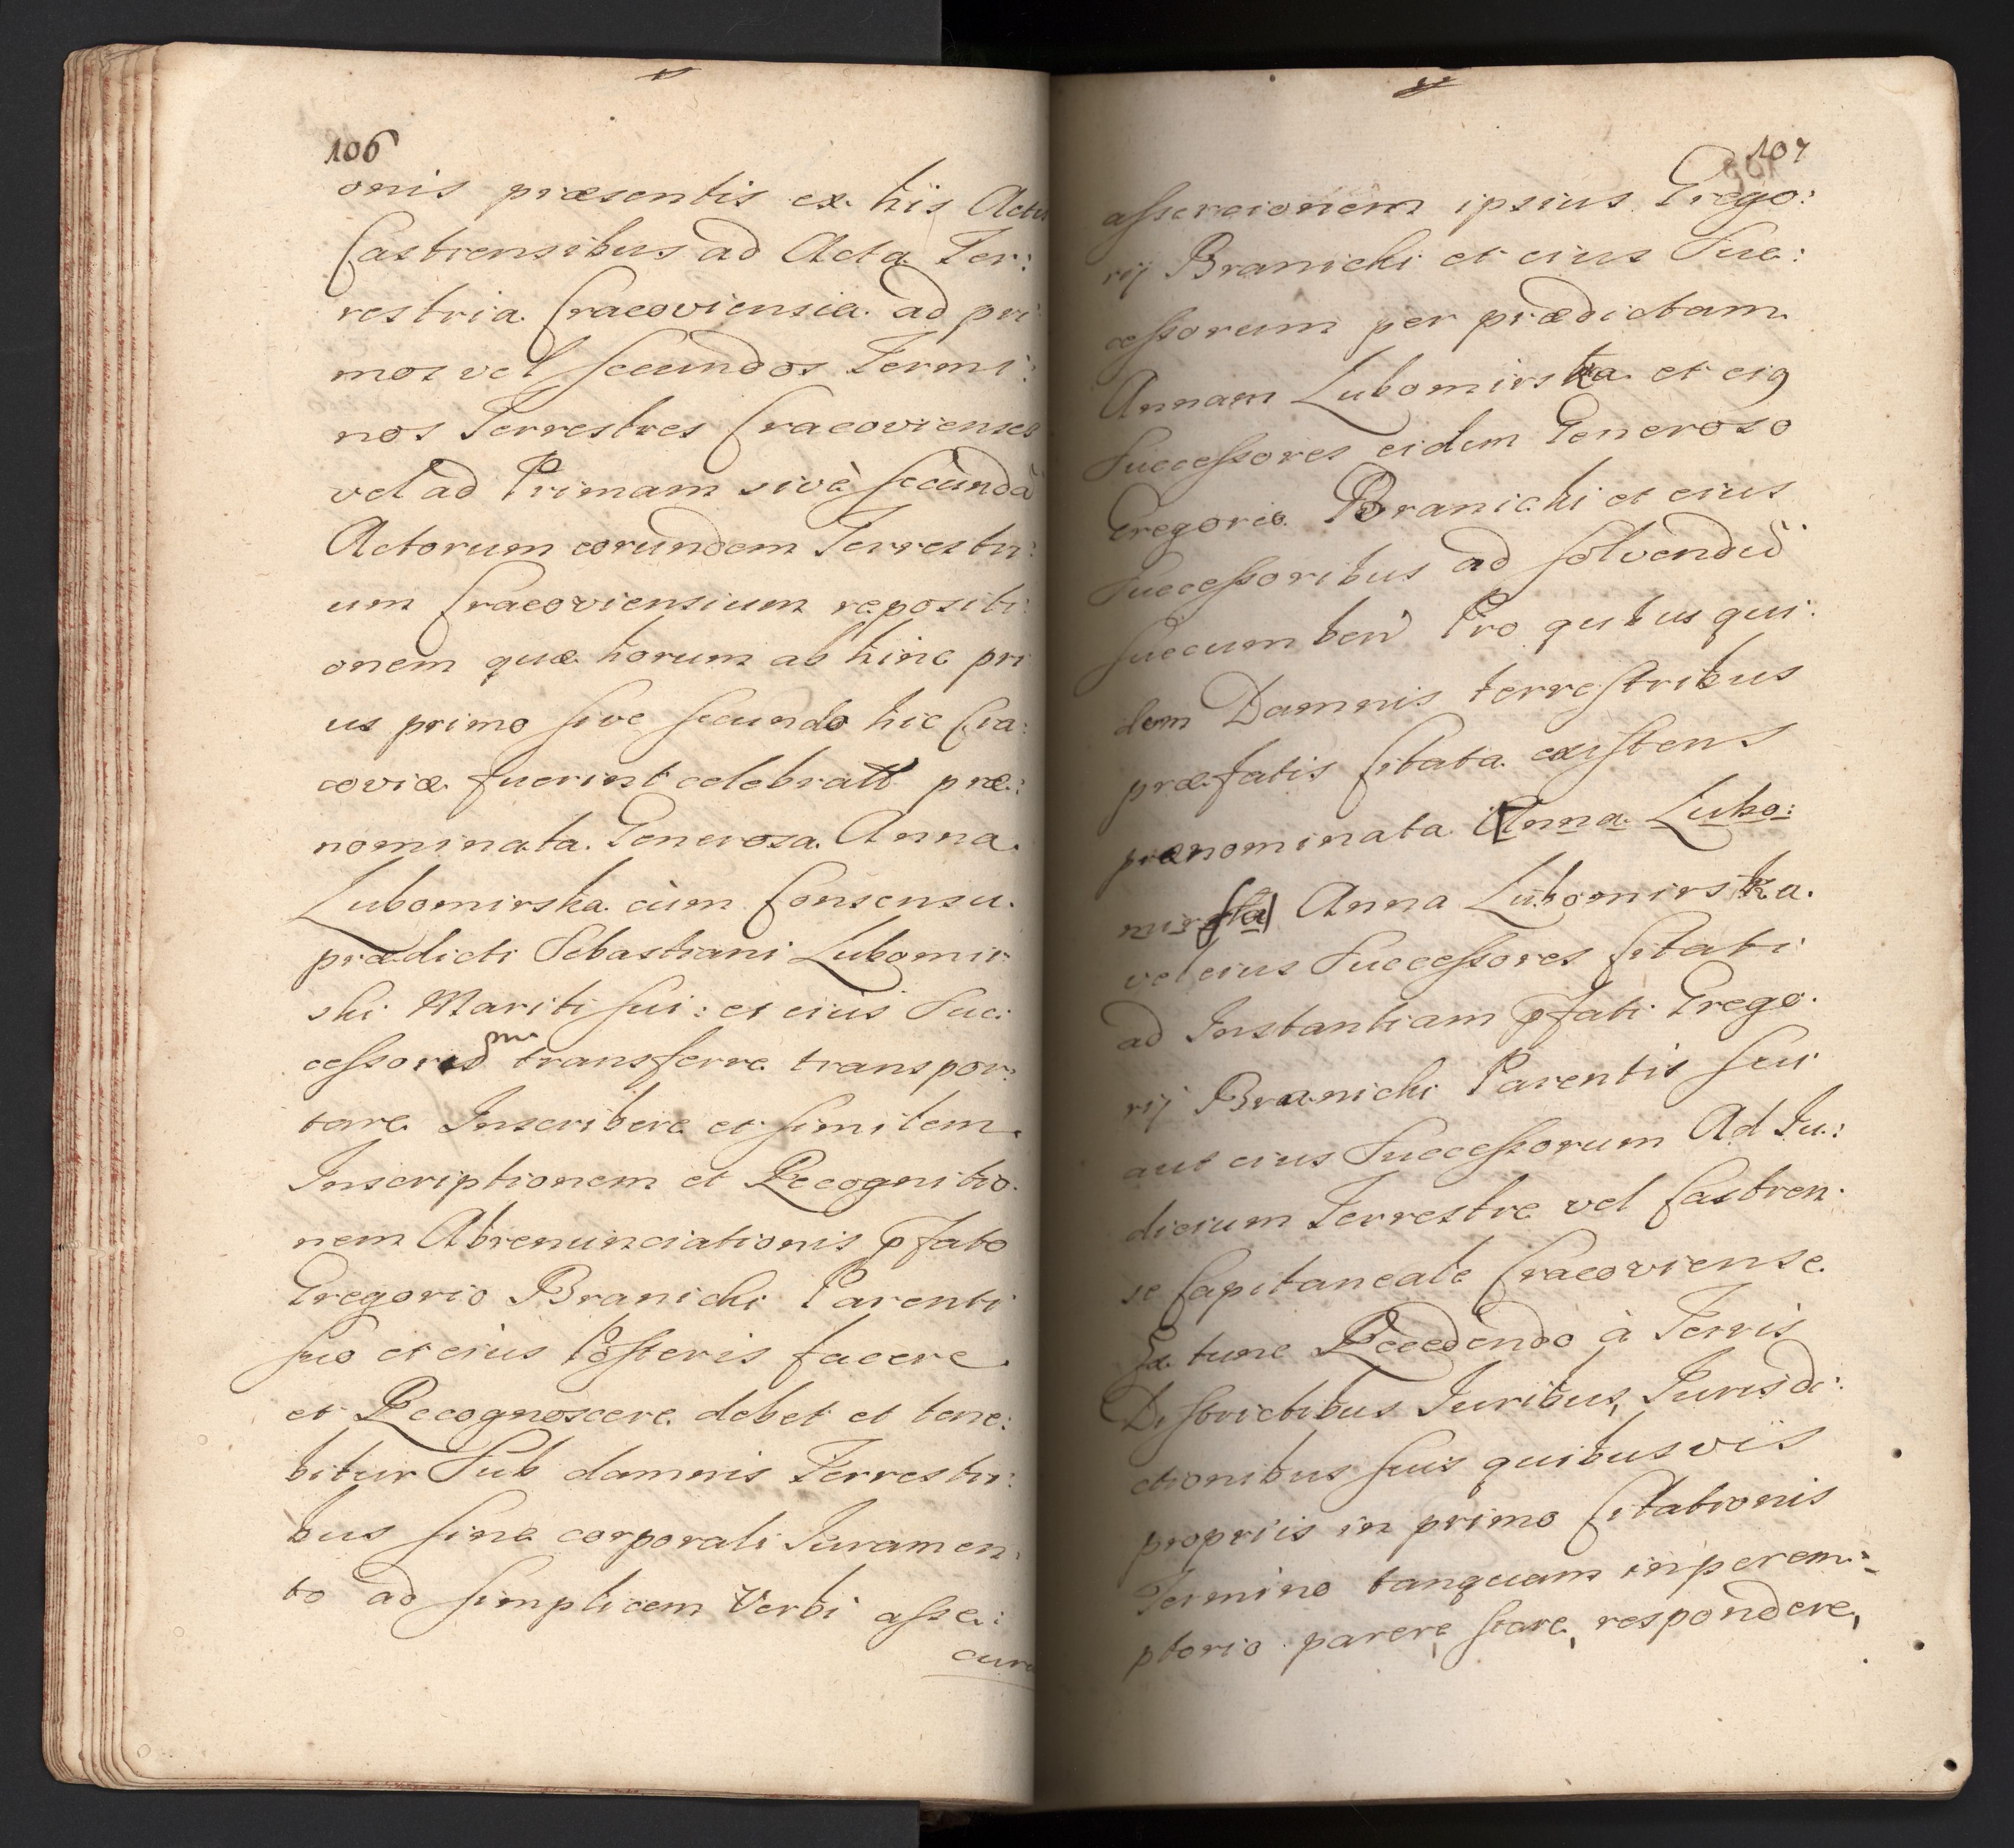 106
onis præsentis ex hiis Actis
Castrensibus ad Acta Ter:
restria Cracoviensia ad pri
mos vel secundos Termi:
nos Terrestres Cracovienses
vel ad Primam sivè secùndã
Actorum eorùndem Terrestri:
um Cracoviensium repositi:
onem quæ horum ab hinc pri
us primo sive secundo hic Cra:
coviæ fuerint celebratt præ:
nominata Generosa Anna
Lubomirska cùm Consensu
prædicti Sebastiani Lubomir
ski Mariti sui: et eius Suc:
cessores
transferre transpor:
tare Inscribere et similem
Inscriptionem et Recognitio
nem Abrenunciationis pfato
Gregorio Branicki Parenti
suo et eius Posteris facere
et Recognoscere debet et tene:
bitur Sub damnis Terrestri:
bus sine corporali Juramen:
to ad simplicem Verbi asse:
107
assercionem ipsius Grego:
rij Branicki et eius Suc:
cessorum per prædictam
Annam Lubomirska et ei9
Successores eidem Generoso
Gregorio Branicki et eius
Successoribus ad solvendũ
succumben Pro quibus qui:
dem Damnis terrestribus
præfatis Citata existens
prænominata Anna Lubo:
mirska) Anna Lubomirska
vel eius Successores Citati
ad Instantiam pfati Grego
rij Branicki Parentis sui
aut eius Successorum Ad Ju:
dicium Terrestre vel Castren
se Capitaneale Cracoviense
Ex tunc Recedendo à Terris
Districtibus Juribus, Jurisdi:
ctionibus suis quibusvis
propriis in primo Citationis
Termino tanquam in perem:
ptorio parere, stare, respondere,